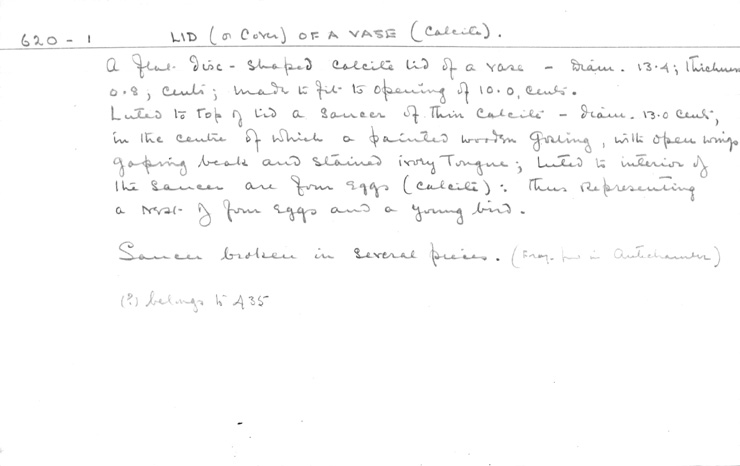 620 - 1 LID (or Cover) OF A VASE (Calcite).
A flat disc-shaped calcite lid of a vase - Diam. 13.4; Thickness
0.8, cents; made to fit to opening of 10.0, cents.
Luted to top of lid a saucer of thin calcite - diam. 13.0 cents,
in the centre of which a painted wooden gosling, with open wings
gaping beak and stained ivory tongue; Luted to interior of
the saucer are four eggs (calcite): Thus representing
a nest of four eggs and a young bird.
Saucer broken in several pieces. (Frag. in Antechamber)
(?) belongs to 435